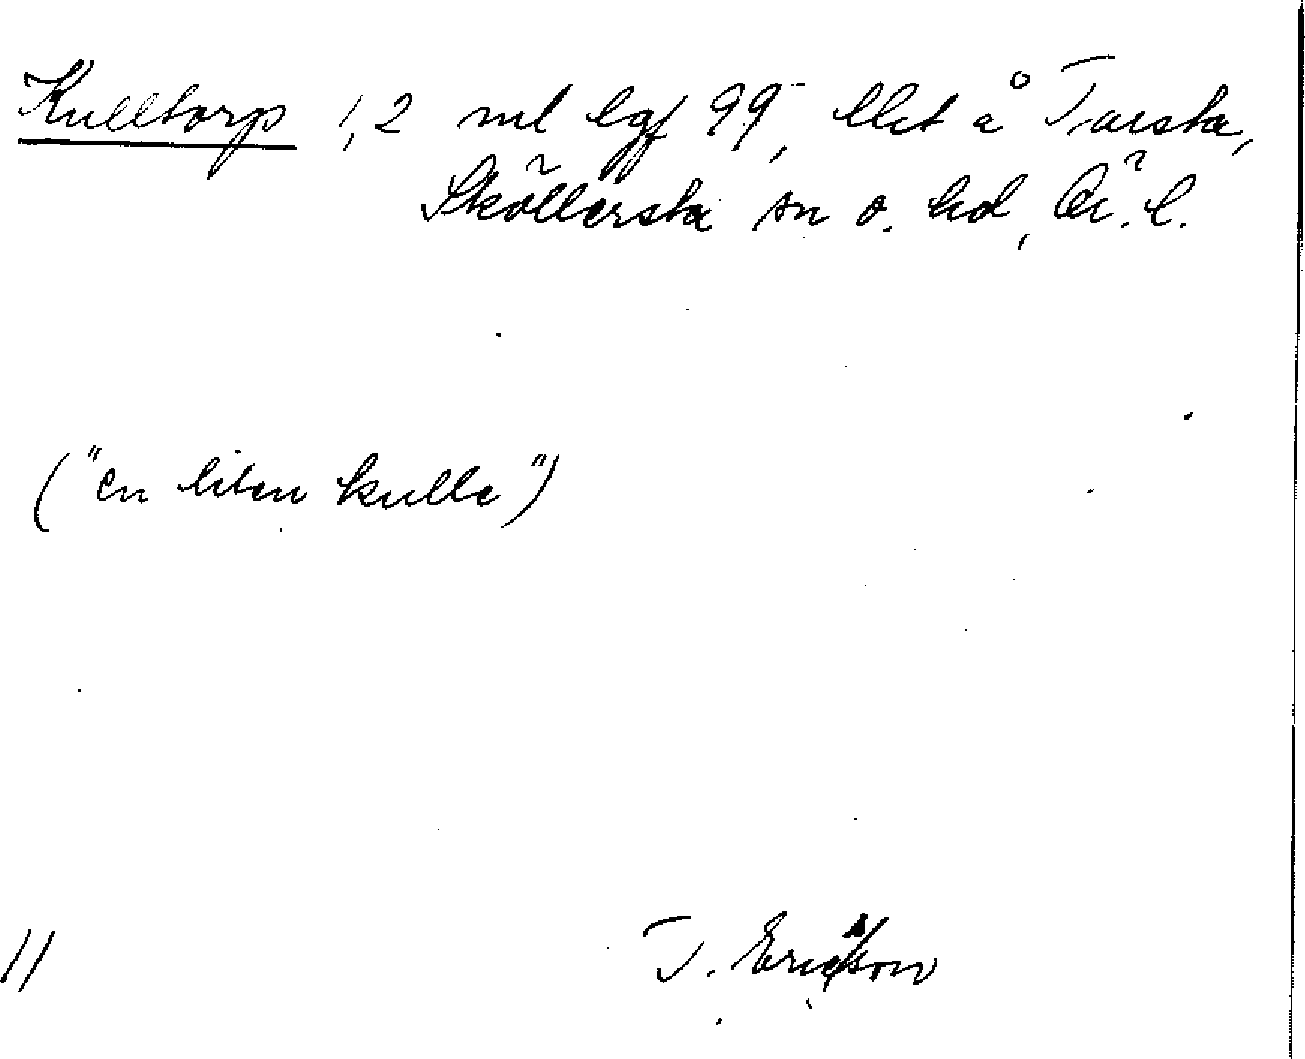 Kulltorp 1,2 ml lgf 99, lht å Tarsta,
Sköllersta sn o. hd, Ör. l.
("en liten kulle")
11 T. Ericson